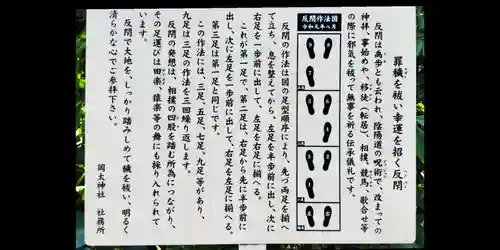 罪穢を祓い幸運を招く反閇
反閇は禹歩とも云われ、陰陽道の呪術で、改まっての
神拝、事始めや、移徙(転居)、相撲、競馬、歌合せ等
の際に邪気を祓って無事を祈る伝承儀礼です。
反閇作法図
令和元年八月
反閇の作法は図の足型順序により、先づ両足を揃へ
て立ち、息を整えてから、左足を半歩前に出し、次に
右足を一歩前に出して、左足を右足に揃へる。
これが第一足で、第二足は、右足から先に半歩前に
出し、次に左足を一歩前に出して、右足を左足に揃へる。
第三足は第一足と同じです。
この作法には、三足、五足、七足、九足等があり、
九足は三足の作法を三回繰り返します。
反閇の発想は、相撲の四股を踏む所為につながり、
その足運びは田楽、猿楽等の舞にも採り入れられて
います。
反閇で大地を、しっかり踏みしめて穢を祓い、明るく
清らかな心でご参拝下さい。
岡太神社 社務所